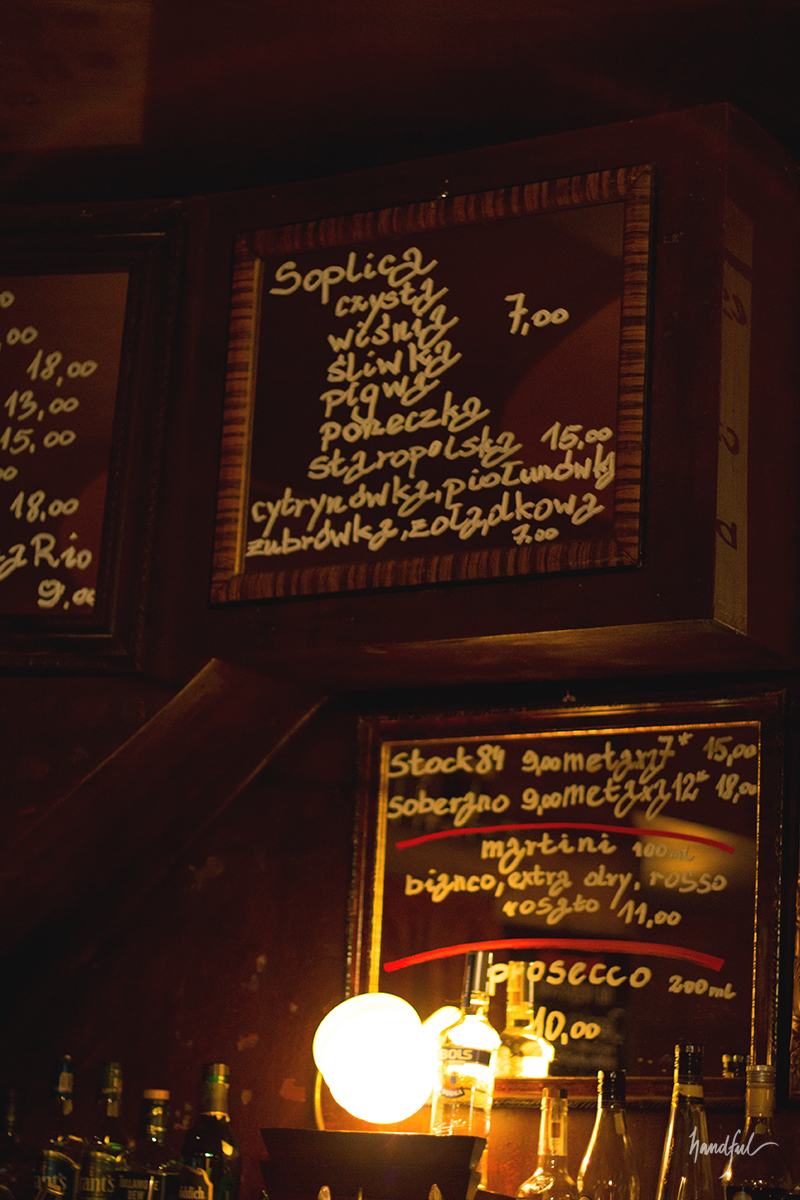 18,00
13,00
15,00
18,00
Rio
9,00
Soplica
czysta
wiśnia 7,00
śliwka
pigwa
porzeczka
staropolska 15,00
cytrynówka, piołunówka
żubrówka, żołądkowa
7,00
Stock84 9,00 metaxa 7* 15,00
soberano 9,00 metaxa 12* 18,00
martini 100ml
bianco, extra dry, rosso
rosato 11,00
prosecco 200ml
10,00
BOLS
DEW
handful